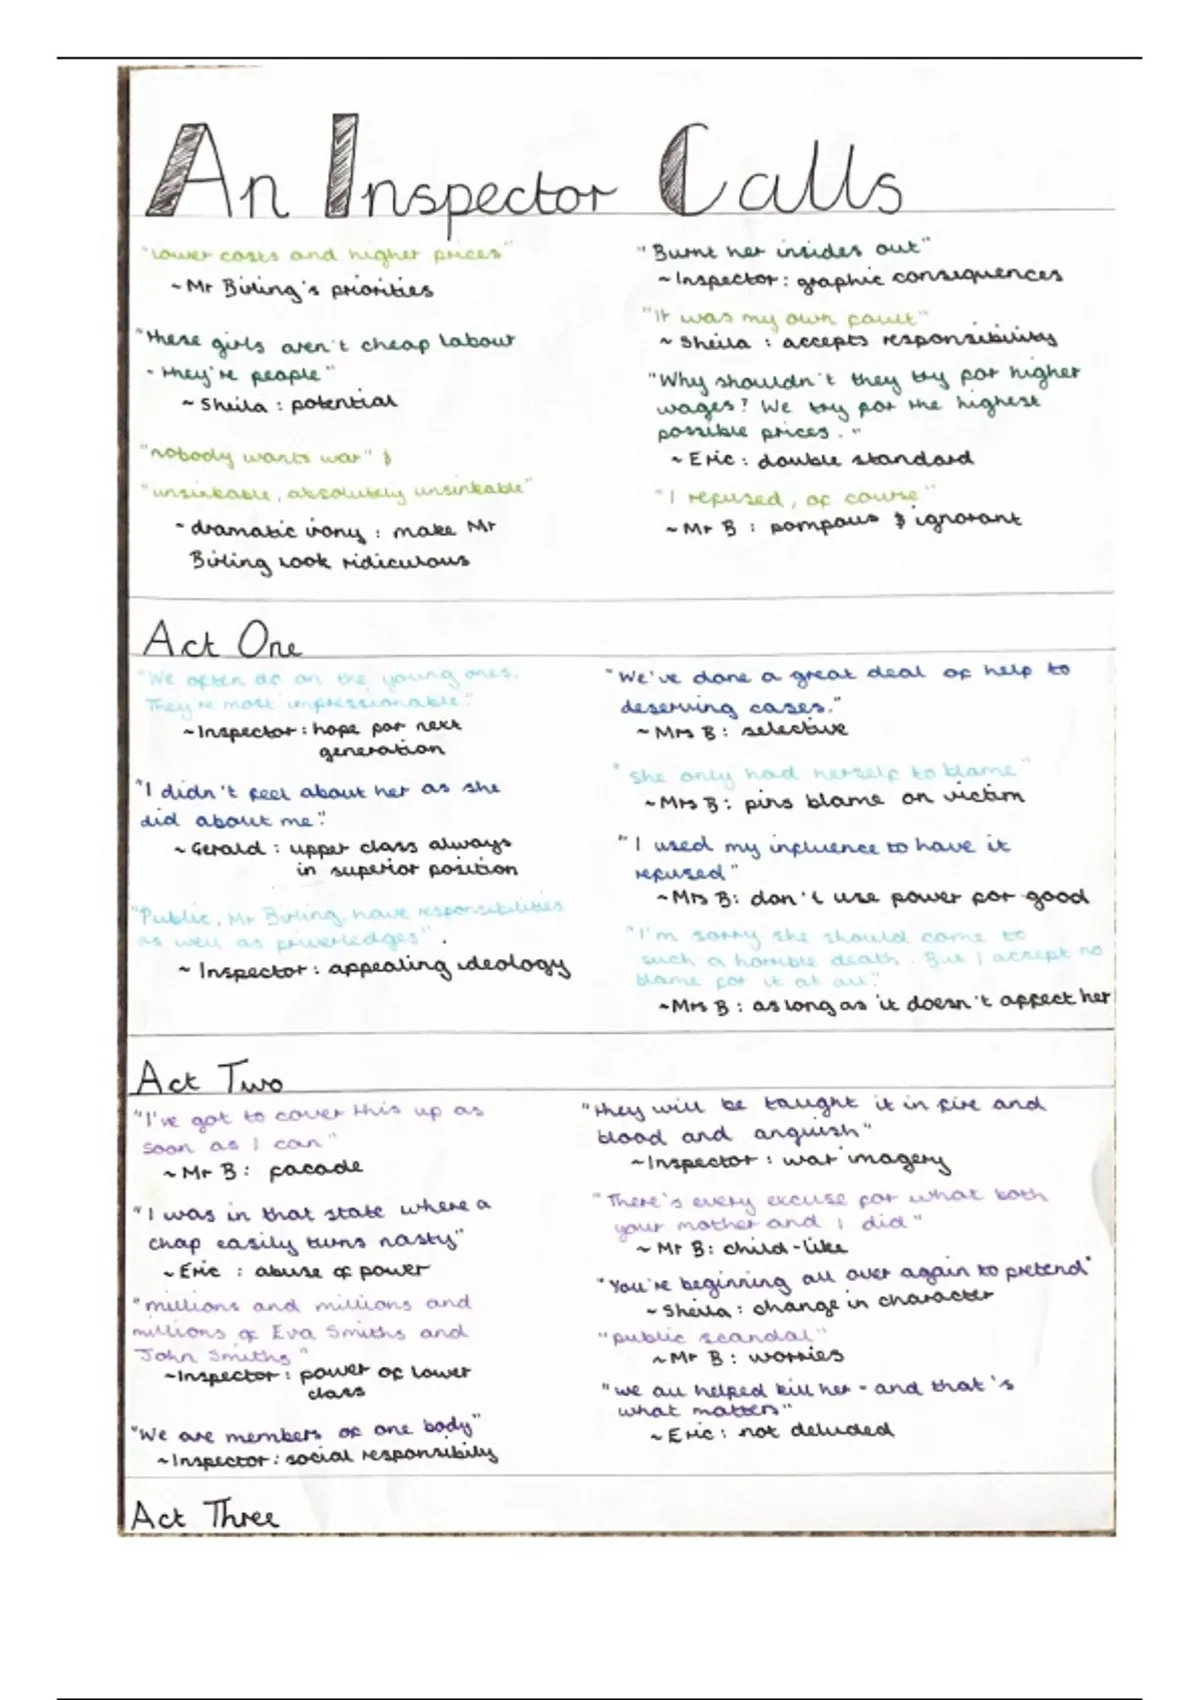 An Inspector Calls
"lower costs and higher prices"
~ Mr Birling's priorities
"these girls aren't cheap labour
- they're people"
~ Sheila : potential
"nobody wants war" &
"unsinkable, absolutely unsinkable"
~ dramatic irony : make Mr
Birling look ridiculous
"Burnt her insides out"
~ Inspector : graphic consequences
"It was my own fault"
~ Sheila : accepts responsibility
"Why shouldn't they try for higher
wages? We try for the highest
possible prices."
~ Eric : double standard
"I refused, of course"
~ Mr B : pompous & ignorant
Act One
"We often do on the young ones.
They're most impressionable."
~ Inspector : hope for next
generation
"I didn't feel about her as she
did about me."
~ Gerald : upper class always
in superior position
"Public, Mr Birling, have responsibilities
as well as priverledges".
~ Inspector : appealing ideology
"We've done a great deal of help to
deserving cases."
~ Mrs B : selective
"she only had herself to blame"
~ Mrs B : pins blame on victim
"I used my influence to have it
refused"
~ Mrs B : don't use power for good
"I'm sorry she should come to
such a horrible death. But I accept no
blame for it at all."
~ Mrs B : as long as it doesn't affect her
Act Two
"I've got to cover this up as
soon as I can"
~ Mr B : facade
"I was in that state where a
chap easily turns nasty"
~ Eric : abuse of power
"millions and millions and
millions of Eva Smiths and
John Smiths"
~ Inspector : power of lower
class
"We are members of one body"
~ Inspector : social responsibiliy
"they will be taught it in fire and
blood and anguish"
~ Inspector : war imagery
"There's every excuse for what both
your mother and I did"
~ Mr B : child-like
"You're beginning all over again to pretend"
~ Sheila : change in character
"public scandal"
~ Mr B : worries
"we all helped kill her - and that's
what matters"
~ Eric : not deluded
Act Three